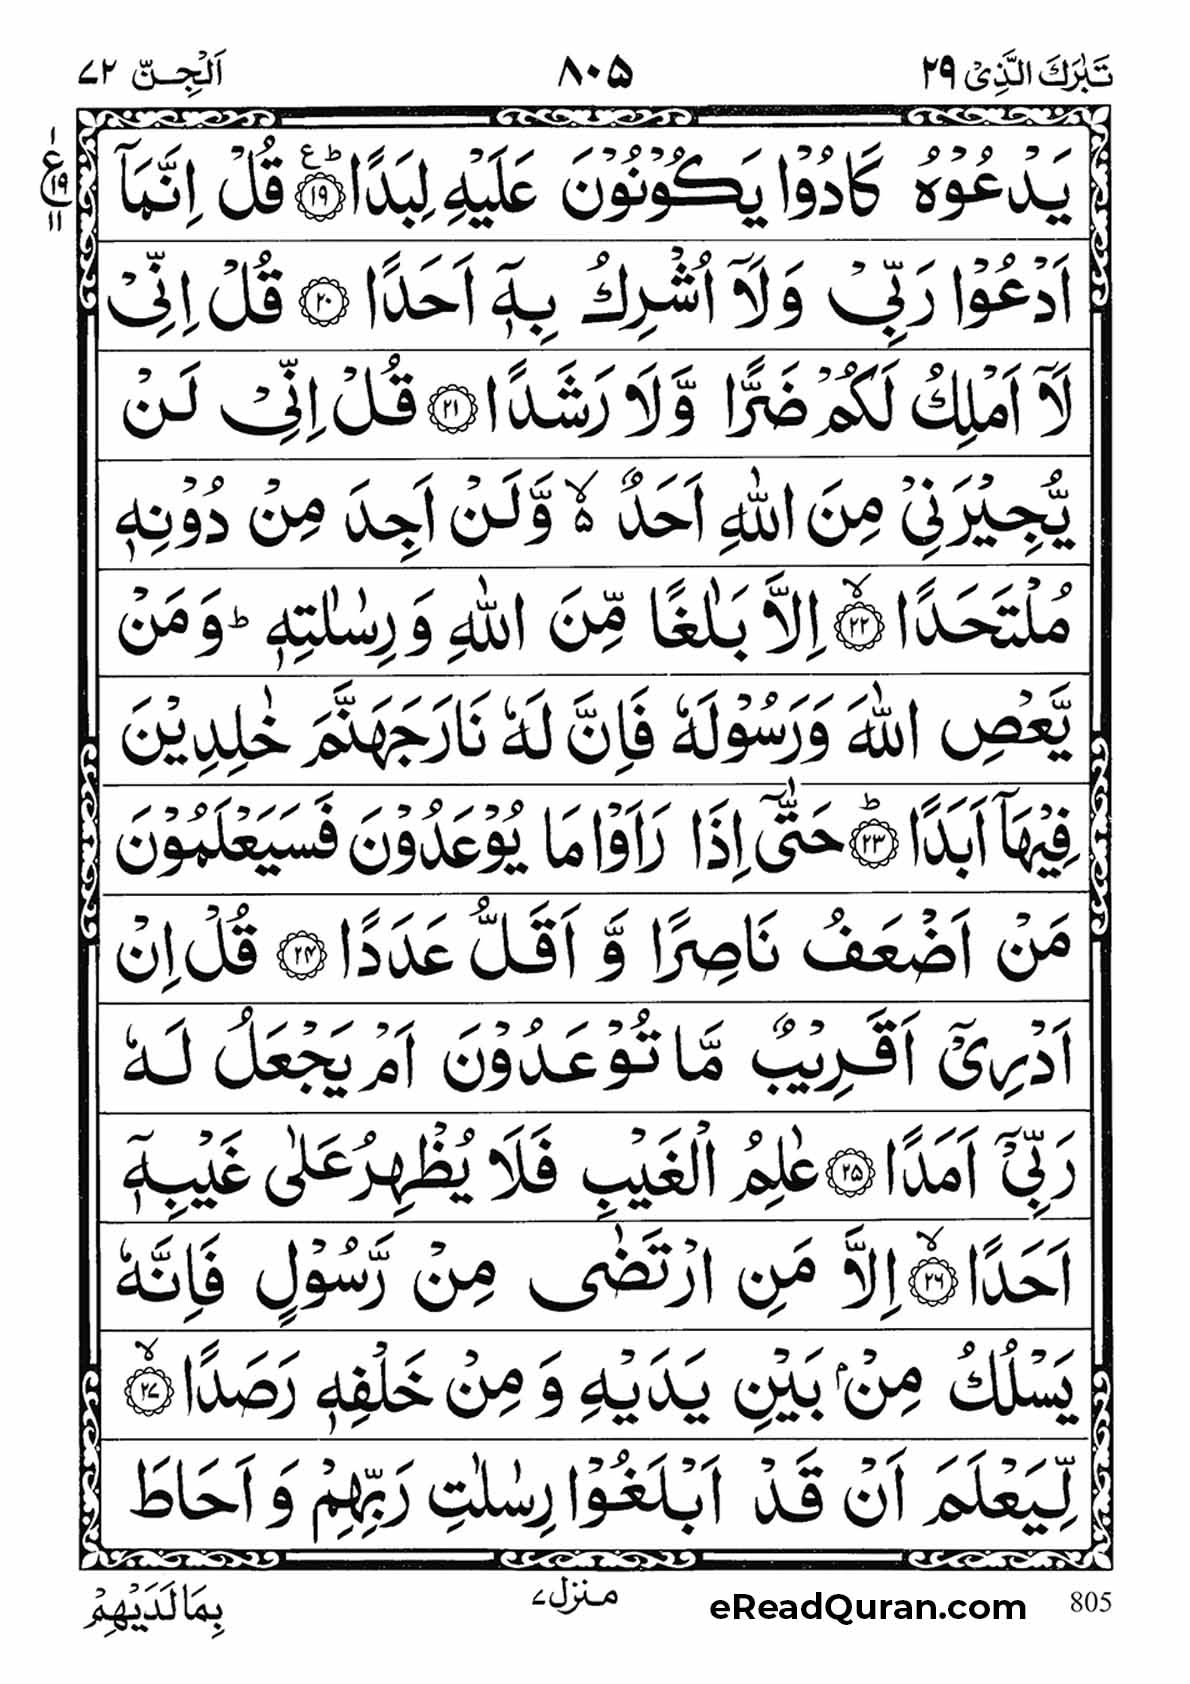 تَبٰرَكَ الَّذِیْ ۲۹ ۸۰۵ اَلْجِنّ ۷۲
یَدْعُوْهُ كَادُوْا یَكُوْنُوْنَ عَلَیْهِ لِبَدًا ؕ۠ ۱۹ قُلْ اِنَّمَاۤ
۱ ع ۱۹ ۱۱
اَدْعُوْا رَبِّیْ وَلَاۤ اُشْرِكُ بِهٖۤ اَحَدًا ۲۰ قُلْ اِنِّیْ
لَاۤ اَمْلِكُ لَكُمْ ضَرًّا وَّلَا رَشَدًا ۲۱ قُلْ اِنِّیْ لَنْ
یُّجِیْرَنِیْ مِنَ اللّٰهِ اَحَدٌ ۙ۬ وَّلَنْ اَجِدَ مِنْ دُوْنِهٖ
مُلْتَحَدًا ۙ ۲۲ اِلَّا بَلٰغًا مِّنَ اللّٰهِ وَرِسٰلٰتِهٖ ؕ وَمَنْ
یَّعْصِ اللّٰهَ وَرَسُوْلَهٗ فَاِنَّ لَهٗ نَارَ جَهَنَّمَ خٰلِدِیْنَ
فِیْهَاۤ اَبَدًا ؕ ۲۳ حَتّٰۤی اِذَا رَاَوْا مَا یُوْعَدُوْنَ فَسَیَعْلَمُوْنَ
مَنْ اَضْعَفُ نَاصِرًا وَّ اَقَلُّ عَدَدًا ۲۴ قُلْ اِنْ
اَدْرِیْۤ اَقَرِیْبٌ مَّا تُوْعَدُوْنَ اَمْ یَجْعَلُ لَهٗ
رَبِّیْۤ اَمَدًا ۲۵ عٰلِمُ الْغَیْبِ فَلَا یُظْهِرُ عَلٰی غَیْبِهٖۤ
اَحَدًا ۙ ۲۶ اِلَّا مَنِ ارْتَضٰی مِنْ رَّسُوْلٍ فَاِنَّهٗ
یَسْلُكُ مِنْۢ بَیْنِ یَدَیْهِ وَمِنْ خَلْفِهٖ رَصَدًا ۙ ۲۷
لِّیَعْلَمَ اَنْ قَدْ اَبْلَغُوْا رِسٰلٰتِ رَبِّهِمْ وَ اَحَاطَ
805 eReadQuran.com منزل ۷ بِمَا لَدَیْهِمْ